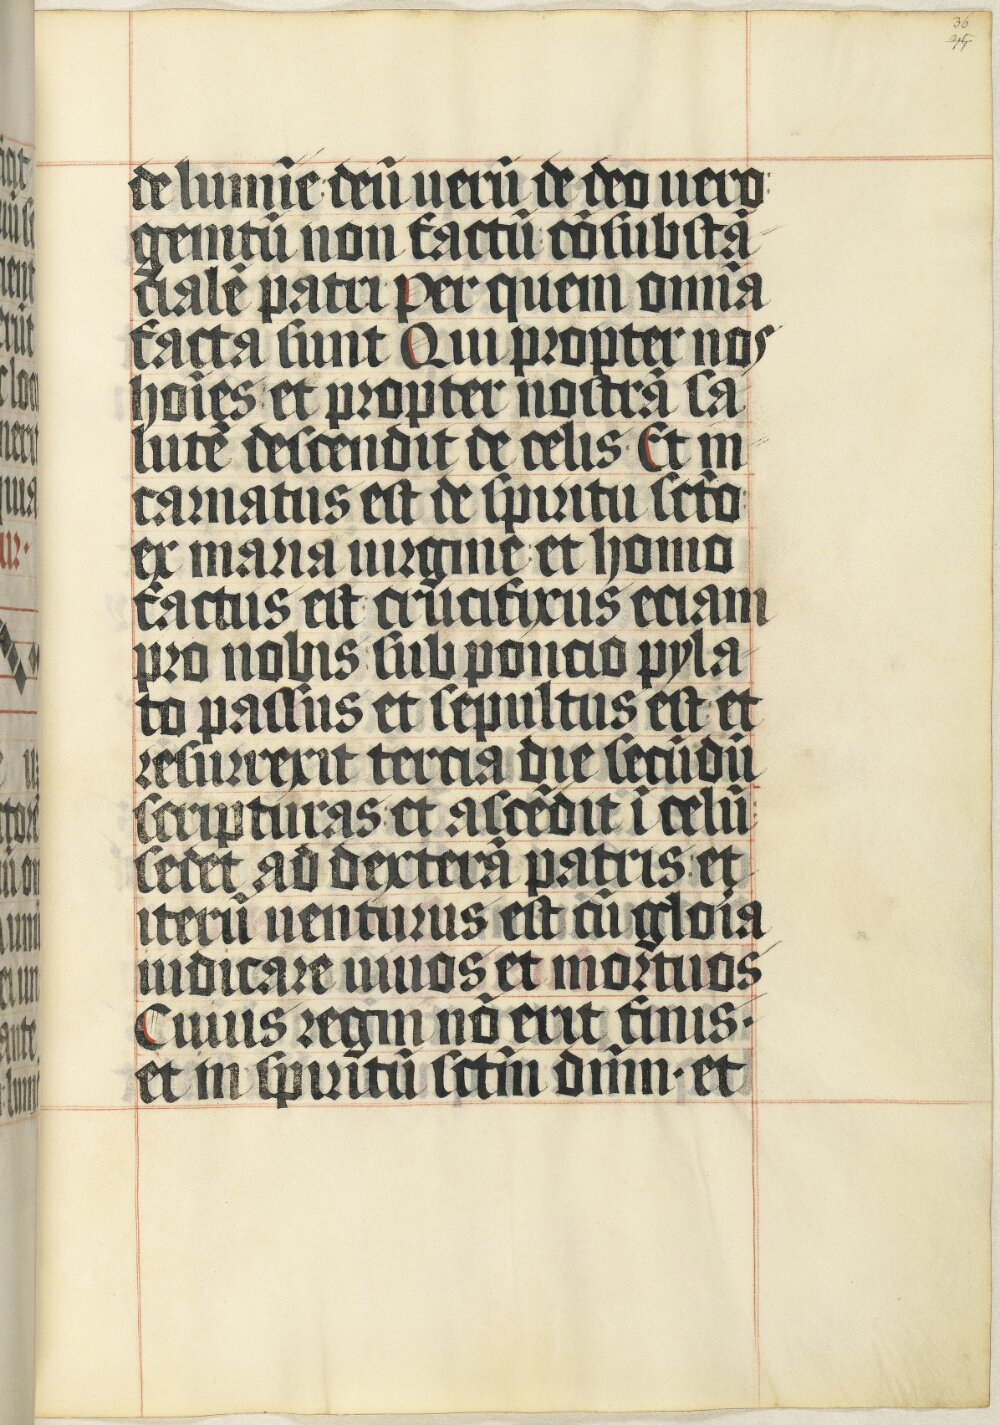 36
de lumīe deū uerū de deo uero
genitū non factū cōsubstā
cialē patri Per quem omīa
facta sunt Qui propter nos
hoīes et propter nostrā sa
lutē descendit de celis Et in
carnatus est de spiritu scto
ex maria uirgine et homo
factus est crucifixus eciam
pro nobis sub poncio pyla
to passus et sepultus est et
resurrexit tercia die secūdū
scripturas et ascēdit ī celū
sedet ad dexterā patris et
iterū uenturus est cū gloīa
iudicare uiuos et mortuos
Cuius regni nō erit finis·
et in spiritū sctm̄ dnm̄· et